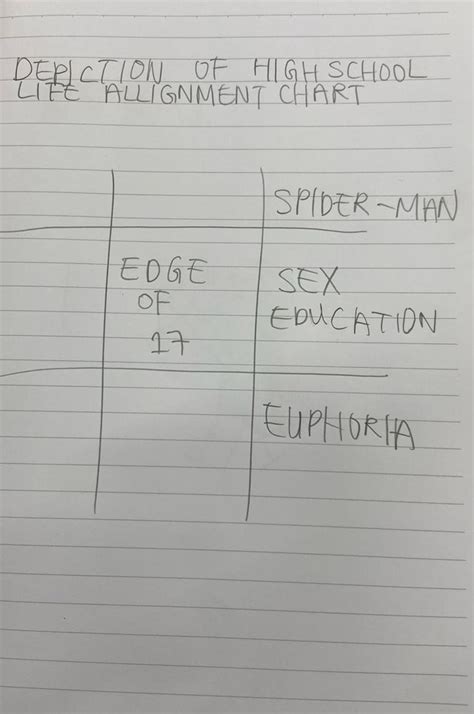 DEPICTION OF HIGH SCHOOL
LIFE ALLIGNMENT CHART
SPIDER-MAN
EDGE
OF
17
SEX
EDUCATION
EUPHORIA